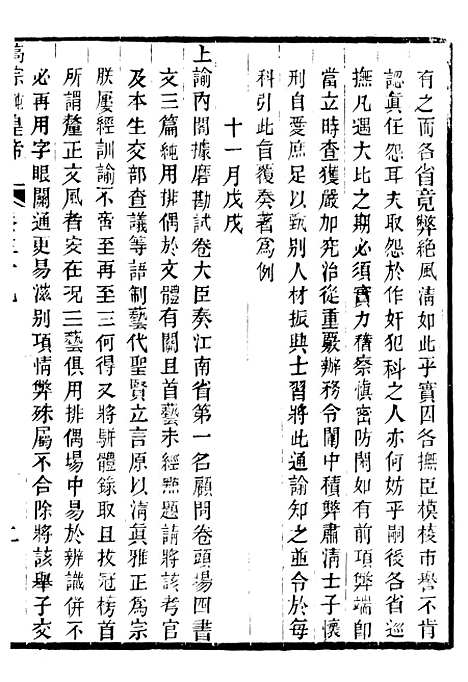 有之而各省竟弊絕風清如此乎實因各撫臣模棱市譽不肯
認眞任怨耳夫取怨於作奸犯科之人亦何妨乎嗣後各省巡
撫凡遇大比之期必須實力稽察愼密防閑如有前項弊端卽
當立時查獲嚴加究治從重嚴辦務令闈中積弊肅清士子懷
刑自愛庶足以甄別人材振興士習將此通諭知之並令於每
科引此旨覆奏著爲例
十一月戊戌
上諭內閣據磨勘試卷大臣奏江南省第一名顧問卷頭場四書
文三篇純用排偶於文體有關且首藝未經點題請將該考官
及本生交部查議等語制藝代聖賢立言原以清眞雅正爲宗
朕屢經訓諭不啻至再至三何得又將駢體錄取且拔冠榜首
所謂釐正文風者安在況三藝俱用排偶場中易於辨識倂不
必再用字眼關通更易滋別項情弊殊屬不合除將該舉子交
高宗純皇帝